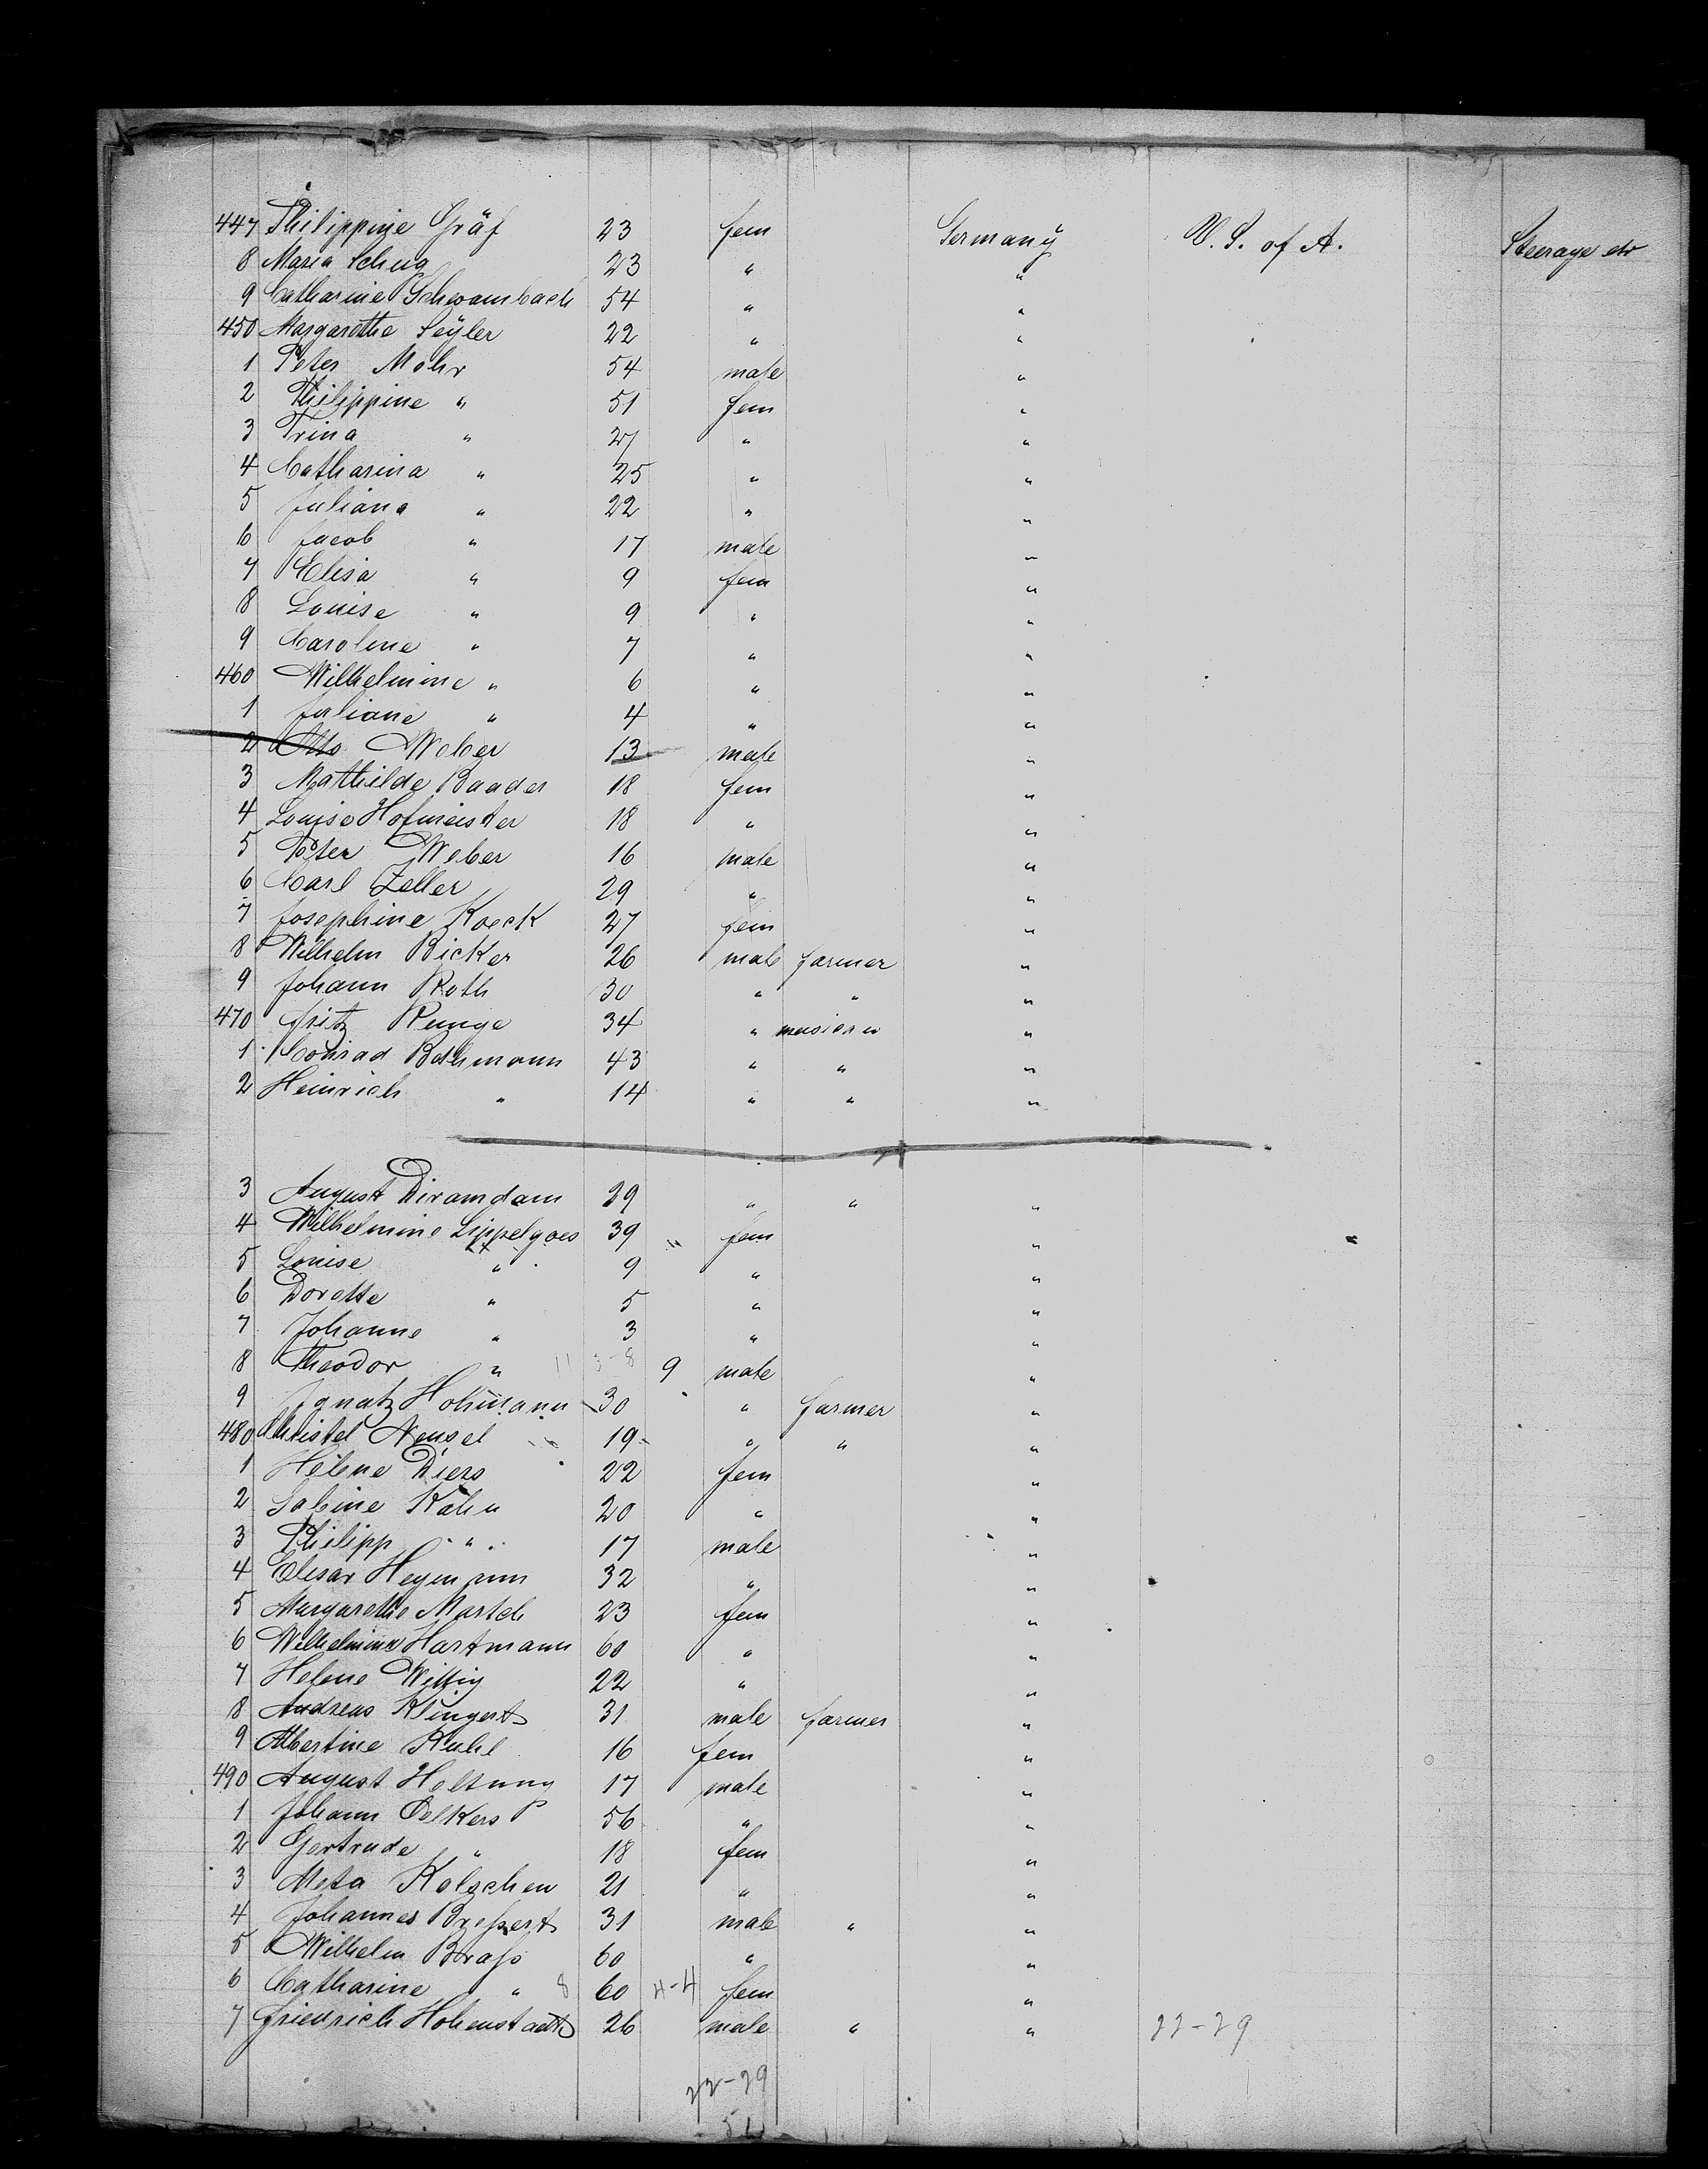 447 Philippine Gräf 23 fem Germany U. S. of A. Steerage
8 Maria Schug 23 " "
9 Catharine Schwambach 54 " "
450 Margarethe Seyler 22 " "
1 Peter Mohr 54 male "
2 Philippine " 51 fem "
3 Trina " 27 " "
4 Catharina " 25 " "
5 Juliana " 22 " "
6 Jacob " 17 male "
7 Elisa " 9 fem "
8 Louise " 9 " "
9 Caroline " 7 " "
460 Wilhelmine " 6 " "
1 Juliane " 4 " "
2 Otto Weber 13 male "
3 Mathilde Baader 18 fem "
4 Louise Hofmeister 18 " "
5 Peter Weber 16 male "
6 Carl Zeller 29 " "
7 Josephine Koeck 27 fem "
8 Wilhelm Bicker 26 male farmer "
9 Johann Roth 30 " " "
470 Fritz Runge 34 " "
1 Conrad Bachmann 43 " " "
2 Heinrich " 14 " " "
3 August 29 " " "
4 Wilhelmine Lippelgoes 39 " fem "
5 Louise " 9 " "
6 Dorette " 5 " "
7 Johanne " 3 " "
8 Theodor " 11 3-8 9 male "
9 Ignatz Hohmann 30 " farmer "
480 Christel Neusel 19 " " "
1 Helene Diers 22 fem "
2 Sabine Kahn 20 " "
3 Philipp " 17 male "
4 Elisar Heymann 32 " "
5 Margarethe 23 fem "
6 Wilhelmine Hartmann 60 " "
7 Helene Wittig 22 " "
8 Andreas Klingert 31 male farmer "
9 Albertine Kuhl 16 fem "
490 August 17 male "
1 Johann Oelkers 56 " "
2 Gertrude " 18 fem "
3 Meta Kolschen 21 " "
4 Johannes 31 male " "
5 Wilhelm Braß 60 " "
6 Catharine " 8 60 4-4 fem "
7 Friedrich Hohenstadt 26 male " " 22-29
22-29